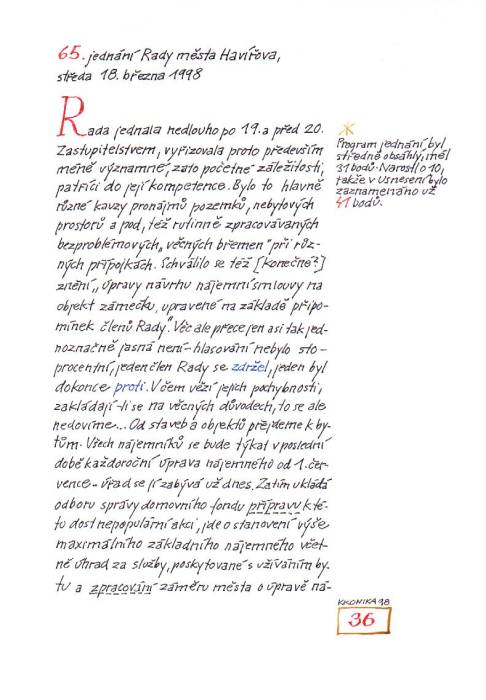 65. jednání Rady města Havířova,
středa 18. března 1998
Rada jednala nedlouho po 19. a před 20.
Zastupitelstvem, vyřizovala proto především
méně významné, zato početné záležitosti,
patřící do její kompetence. Bylo to hlavně
různé kauzy pronájmů pozemků, nebytových
prostorů a pod, též rutinně zpracovávaných
bezproblémových „věčných břemen" při růz-
ných přípojkách. Schválilo se též [konečné?]
znění „úpravy návrhu nájemní smlouvy na
objekt zámečku, upravené na základě připo-
mínek členů Rady". Věc ale přece jen asi tak jed-
noznačně jasná není - hlasování nebylo sto-
procentní, jeden člen Rady se zdržel, jeden byl
dokonce proti. V čem vězí jejich pochybnosti,
zakládají-li se na věcných důvodech, to se ale
nedovíme... Od staveb a objektů přejdeme k by-
tům. Všech nájemníků se bude týkat v poslední
době každoroční úprava nájemného od 1. čer-
vence - úřad se jí zabývá už dnes. Zatím ukládá
odboru správy domovního fondu přípravu k té-
to dost nepopulární akci, jde o stanovení výše
maximálního základního nájemného včet-
ně úhrad za služby, poskytované s užíváním by-
tu a zpracování záměru města o úpravě ná-
Program jednání byl
středně obsáhlý, měl
31 bodů. Narostlo 10,
takže v Usnesení bylo
zaznamenáno už
41 bodů.
KRONIKA 98
36